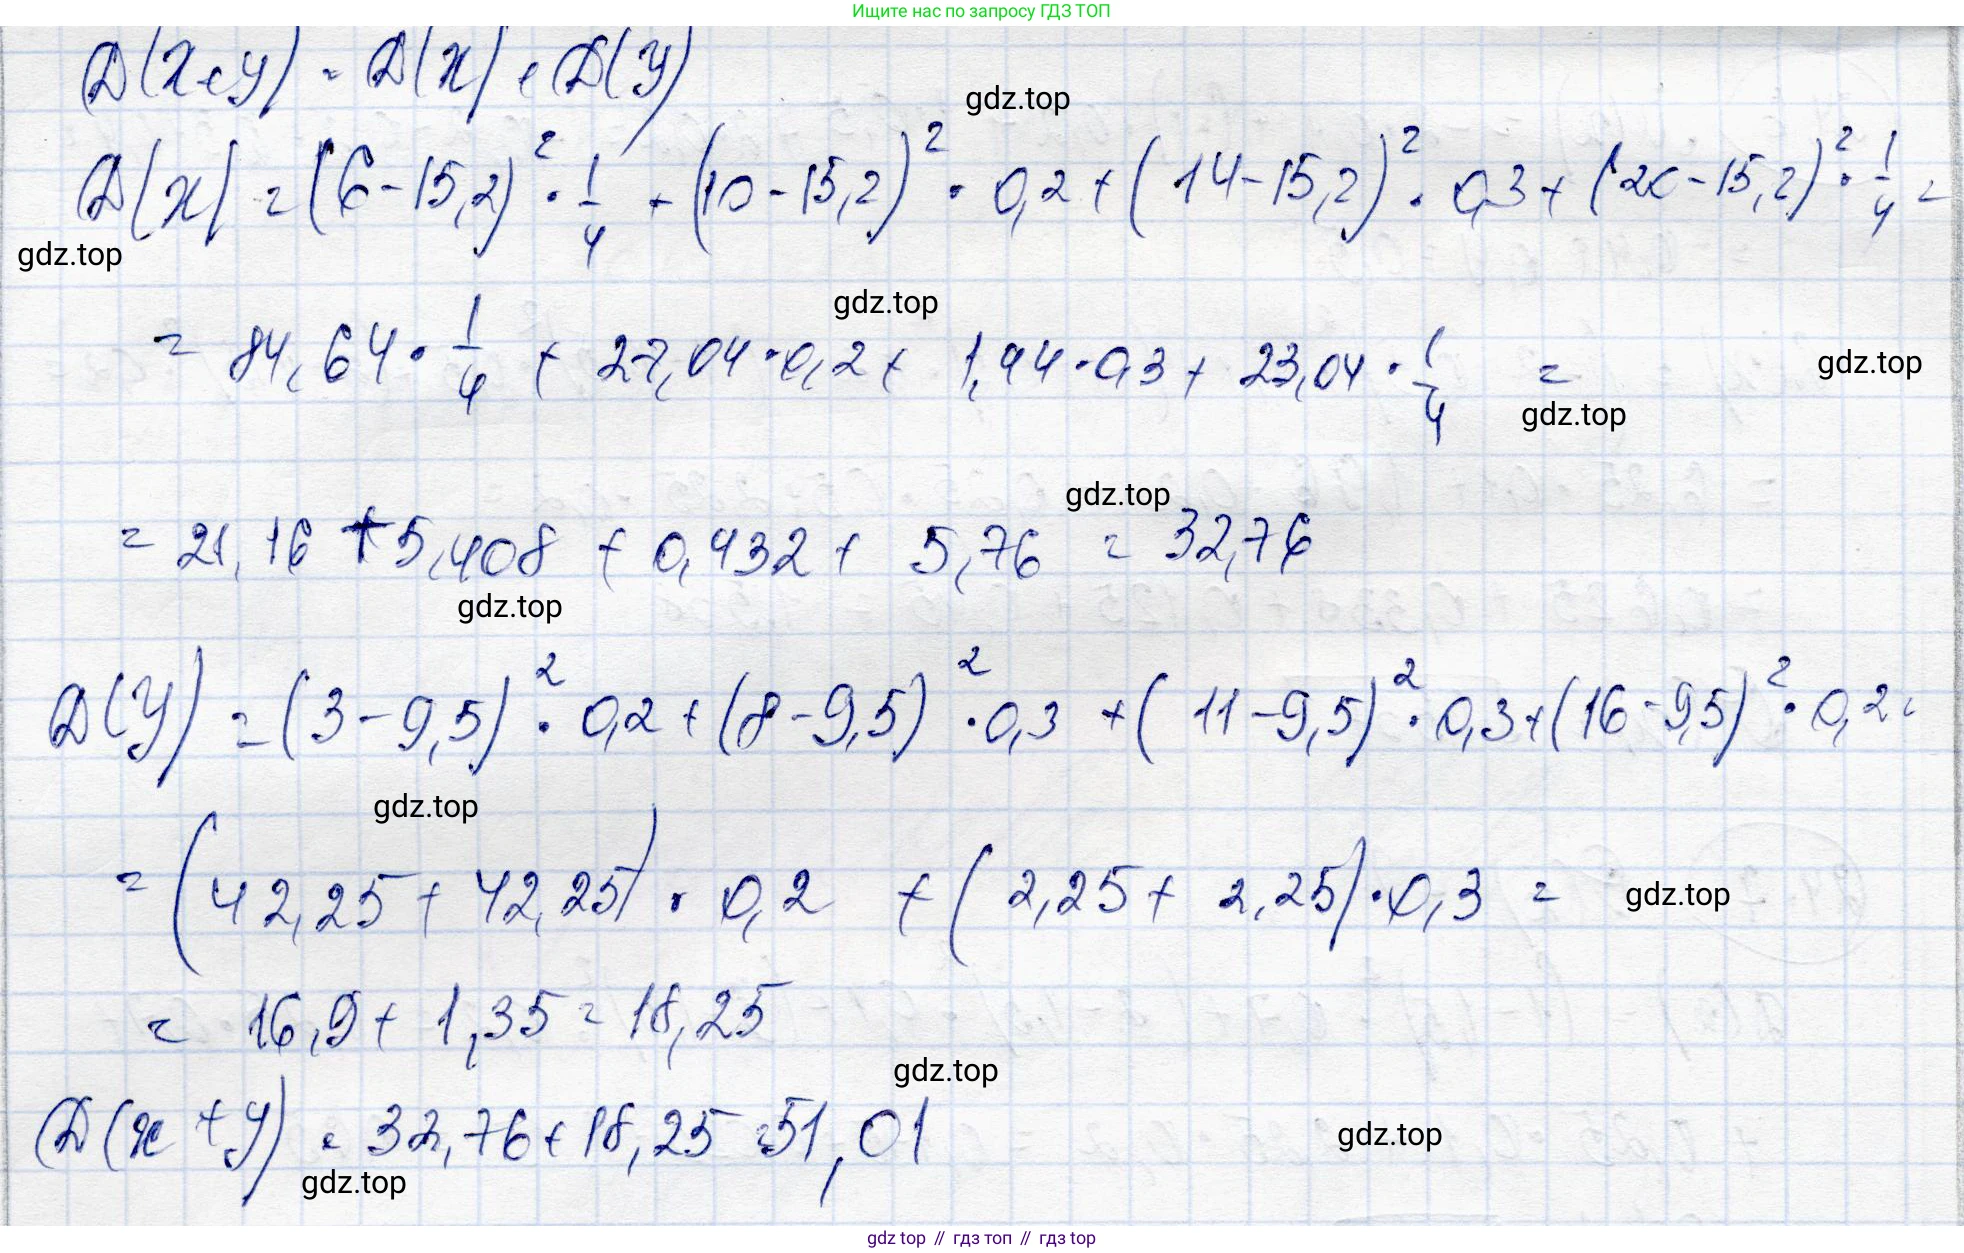 Ищите нас по запросу ГДЗ ТОП
D(X+Y) = D(X) + D(Y)
gdz.top
D(X) = (6-15,2)² · 1/4 + (10-15,2)² · 0,2 + (14-15,2)² · 0,3 + (20-15,2)² · 1/4 =
gdz.top
gdz.top
= 84,64 · 1/4 + 27,04 · 0,2 + 1,44 · 0,3 + 23,04 · 1/4 =
gdz.top
gdz.top
gdz.top
= 21,16 + 5,408 + 0,432 + 5,76 = 32,76
gdz.top
D(Y) = (3-9,5)² · 0,2 + (8-9,5)² · 0,3 + (11-9,5)² · 0,3 + (16-9,5)² · 0,2 =
gdz.top
= (42,25 + 42,25) · 0,2 + (2,25 + 2,25) · 0,3 =
gdz.top
= 16,9 + 1,35 = 18,25
gdz.top
D(x+y) = 32,76 + 18,25 = 51,01
gdz.top
gdz.top
gdz top // гдз топ // гдз top